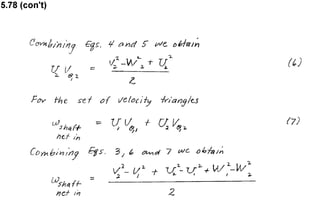 5.78 (con't)
Combining Eqs. 4 and 5 we obtain
U₂ V_θ,2 = (V₂² - W₂² + U₂²) / 2 (6)
For the set of velocity triangles
w_shaft net in = U₁ V_θ,1 + U₂ V_θ,2 (7)
Combining Eqs. 3, 6 and 7 we obtain
w_shaft net in = (V₂² - V₁² + U₂² - U₁² + W₁² - W₂²) / 2